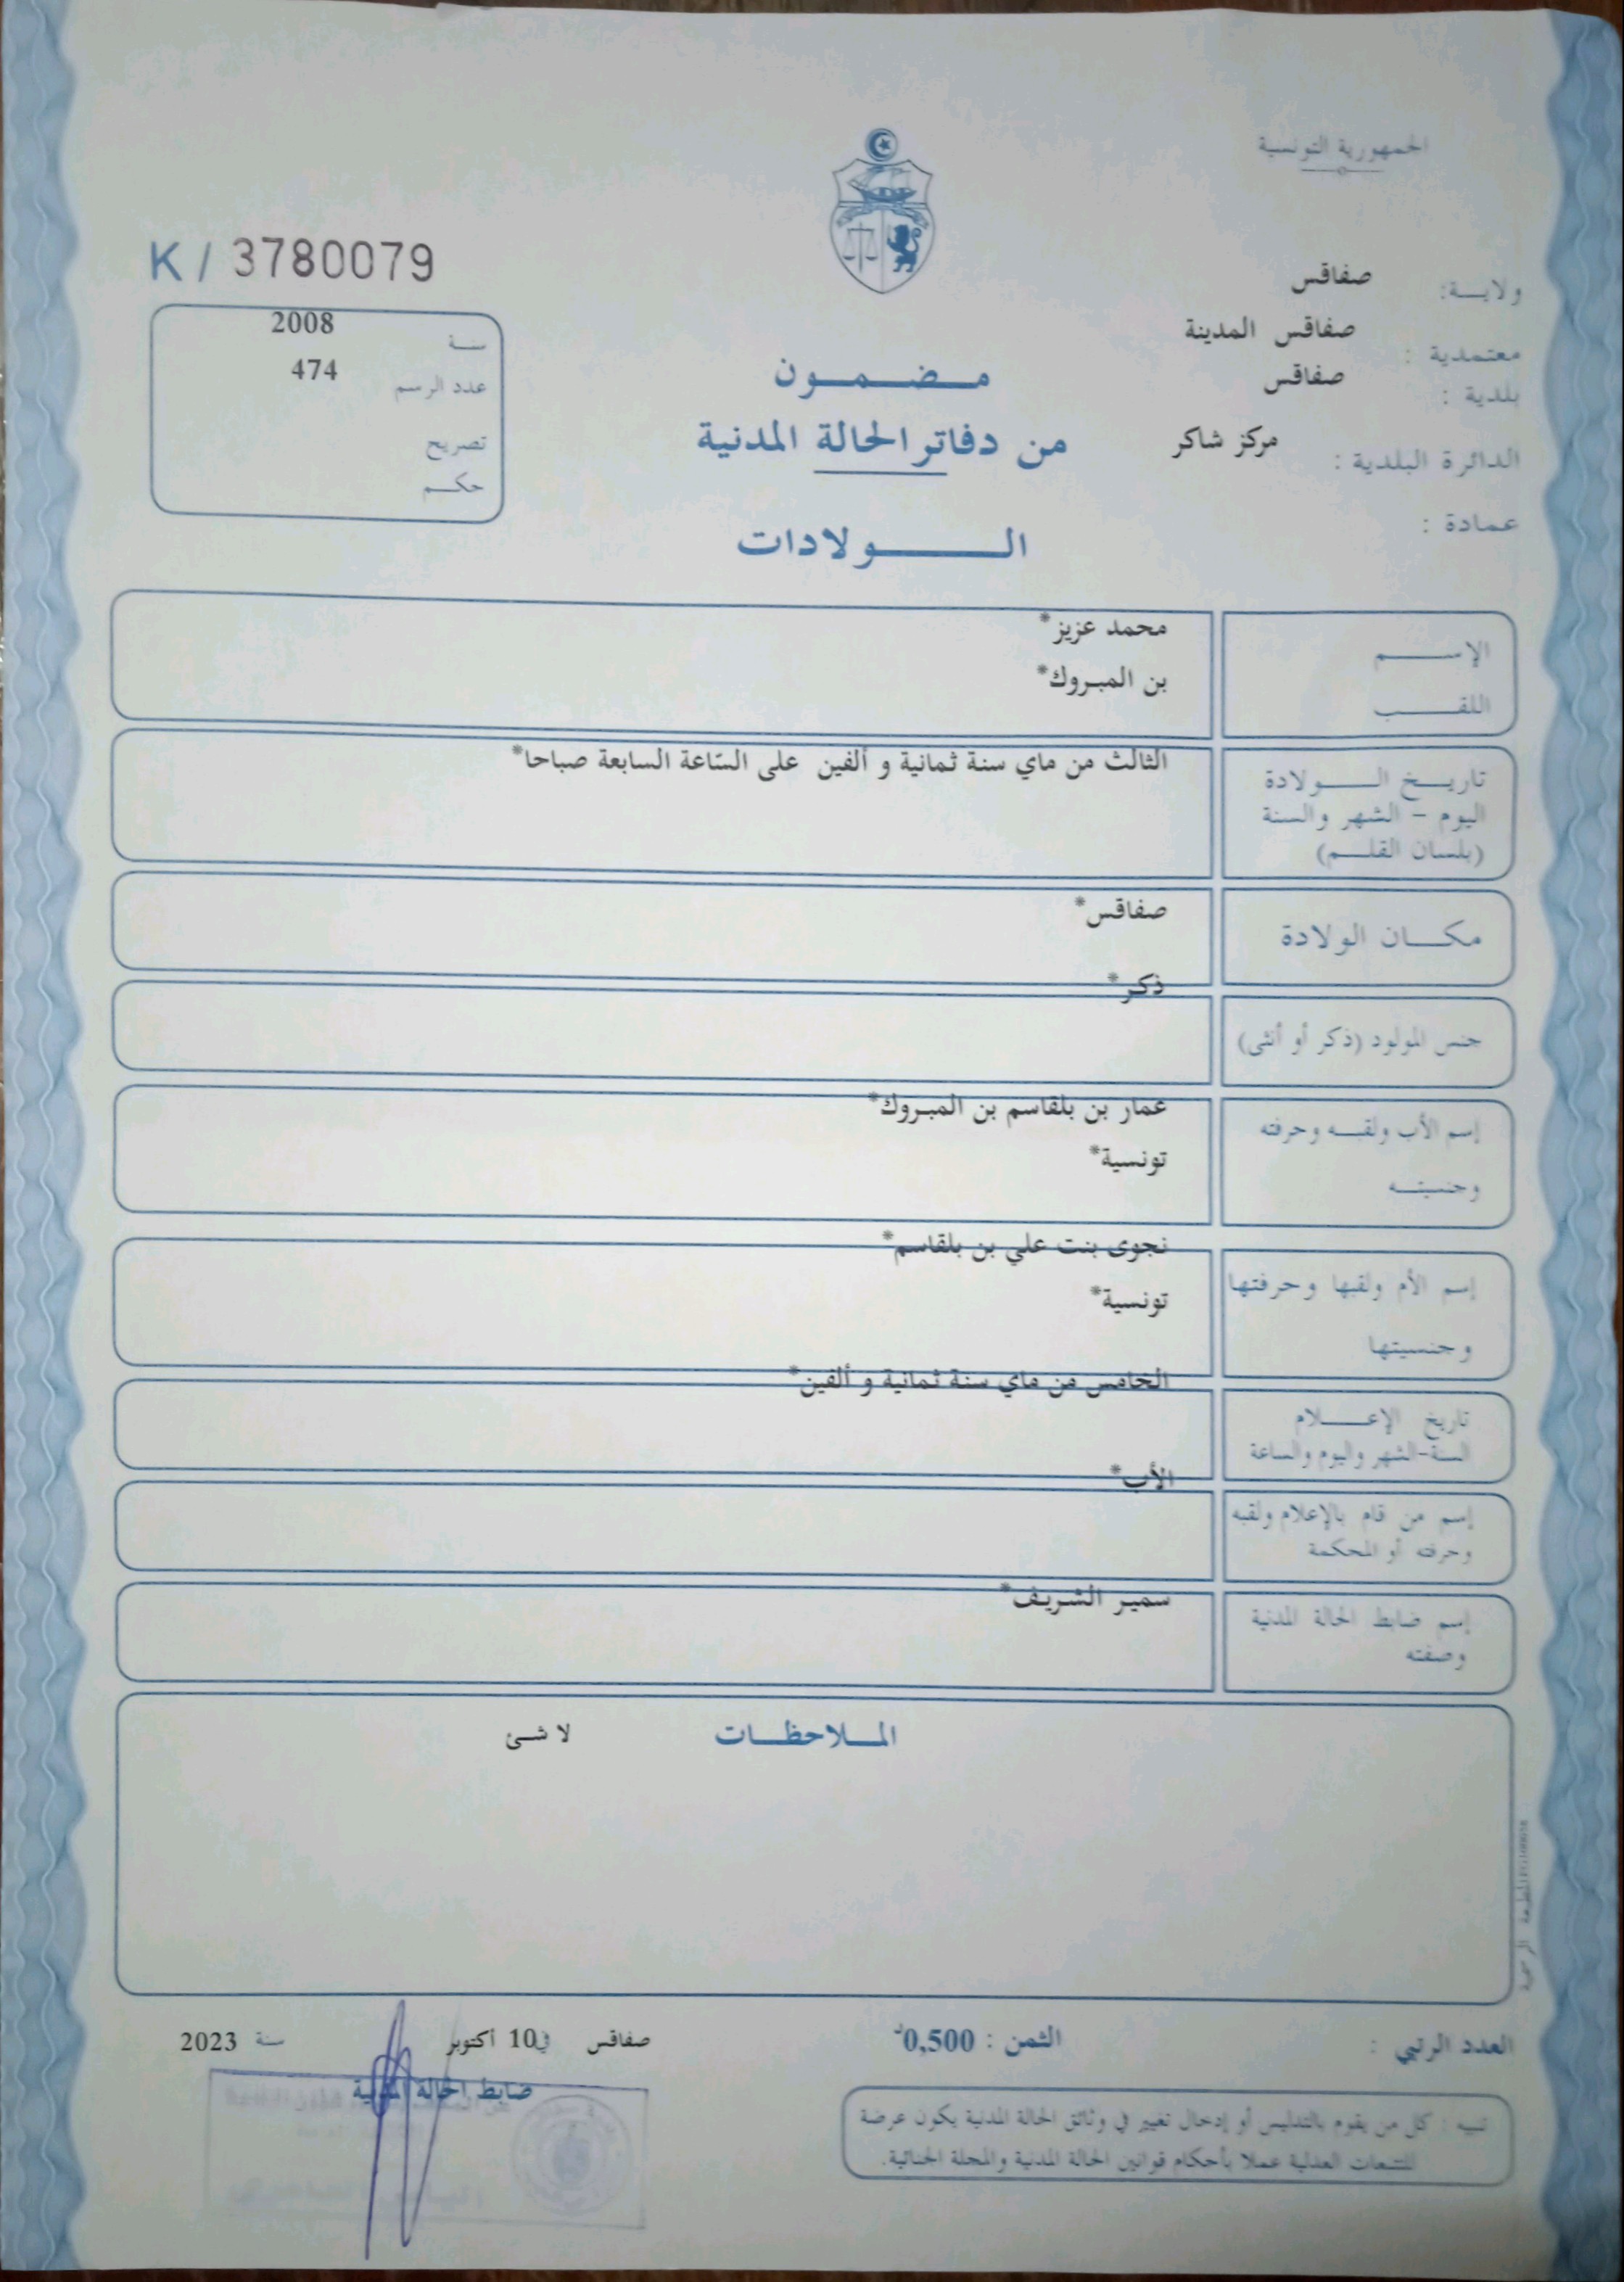 الجمهورية التونسية
K / 3780079
ولايـــة: صفاقس
معتمدية : صفاقس المدينة
بلدية : صفاقس
الدائرة البلدية : مركز شاكر
عمادة :
سنة 2008
عدد الرسم 474
تصريح
حكم
مضمون
من دفاتر الحالة المدنية
الولادات
الإسم محمد عزيز*
اللقب بن المبروك*
تاريخ الولادة الثالث من ماي سنة ثمانية و ألفين على الساعة السابعة صباحا*
اليوم – الشهر والسنة
(بلسان القلم)
مكان الولادة صفاقس*
جنس المولود (ذكر أو أنثى) ذكر*
إسم الأب ولقبه وحرفته عمار بن بلقاسم بن المبروك*
وجنسيته تونسية*
إسم الأم ولقبها وحرفتها نجوى بنت علي بن بلقاسم*
وجنسيتها تونسية*
تاريخ الإعلام الخامس من ماي سنة ثمانية و ألفين*
السنة-الشهر واليوم والساعة
إسم من قام بالإعلام ولقبه الأب*
وحرفته أو المحكمة
إسم ضابط الحالة المدنية سمير الشريف*
وصفته
الملاحظات لا شئ
المطبعة الرسمية
العدد الرتبي :
الثمن : 0,500د
صفاقس في 10 أكتوبر سنة 2023
ضابط الحالة المدنية
تنبيه : كل من يقوم بالتدليس أو إدخال تغيير في وثائق الحالة المدنية يكون عرضة
للتتبعات العدلية عملا بأحكام قوانين الحالة المدنية والمجلة الجنائية.